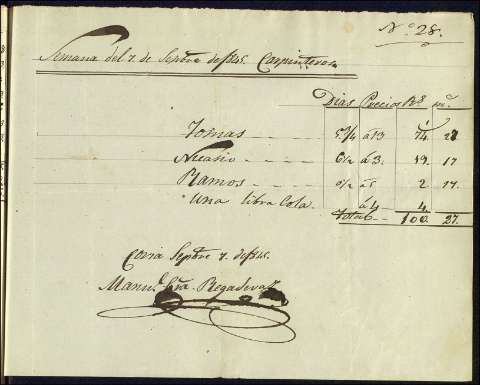 Nº 28.
Semana del 7. de Sepbre de 845. Carpinteros
Dias Precios Rs m.s
Tomas 5¾ á 13 74. 27
Nicasio 6½ á 3. 19. 17
Ramos ½ á 5 2. 17.
Una libra Cola. á 4 4.
Total 100. 27.
Coria Sepbre 7. de 845.
Manuel Regadera